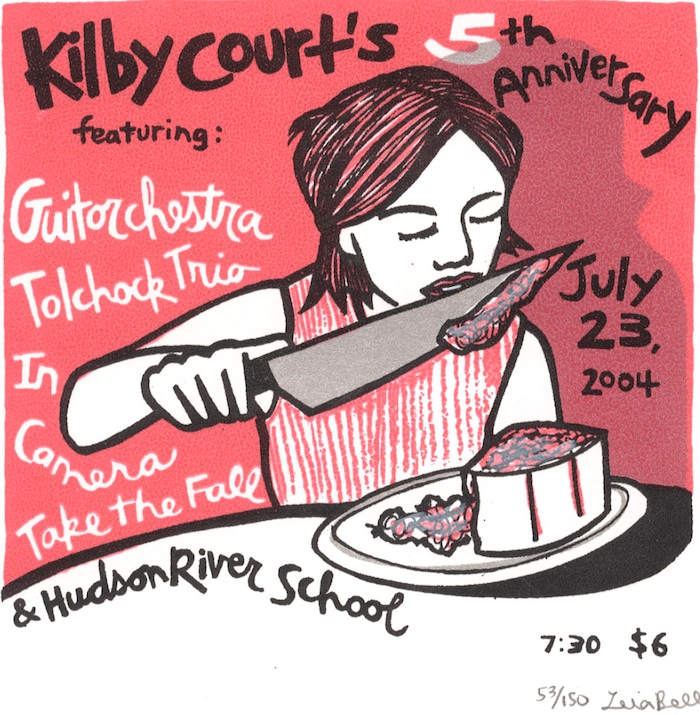 Kilby Court's 5th
Anniversary
featuring:
Guitorchestra
Tolchock Trio
In
Camera
Take the Fall
& Hudson River School
July
23,
2004
7:30 $6
53/150 Leia Bell